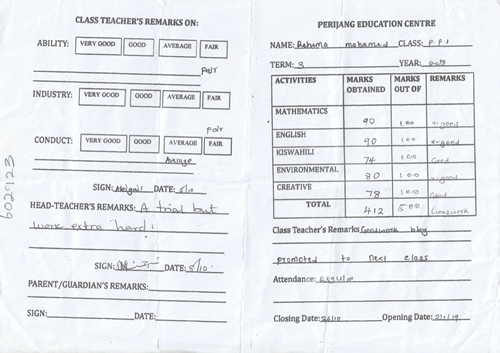 CLASS TEACHER'S REMARKS ON:
ABILITY: VERY GOOD GOOD AVERAGE FAIR
fair
INDUSTRY: VERY GOOD GOOD AVERAGE FAIR
fair
CONDUCT: VERY GOOD GOOD AVERAGE FAIR
Average
SIGN: Abigail DATE: 5/10
HEAD-TEACHER'S REMARKS: A trial but
work extra "hard!
SIGN: DATE: 5/10
PARENT/GUARDIAN'S REMARKS:
SIGN: DATE:
602923
PERIJANG EDUCATION CENTRE
NAME: mohamed CLASS: P.P1
TERM: 3 YEAR: 2018
ACTIVITIES MARKS OBTAINED MARKS OUT OF REMARKS
MATHEMATICS 90 100 v-good
ENGLISH 90 100 v-good
KISWAHILI 74 100 Good
ENVIRONMENTAL 80 100 v-good
CREATIVE 78 100 Good
TOTAL 412 500 Goodwork
Class Teacher's Remarks Goodwork
promoted to next class
Attendance: Regular
Closing Date: 26/10 Opening Date: 2/1/19